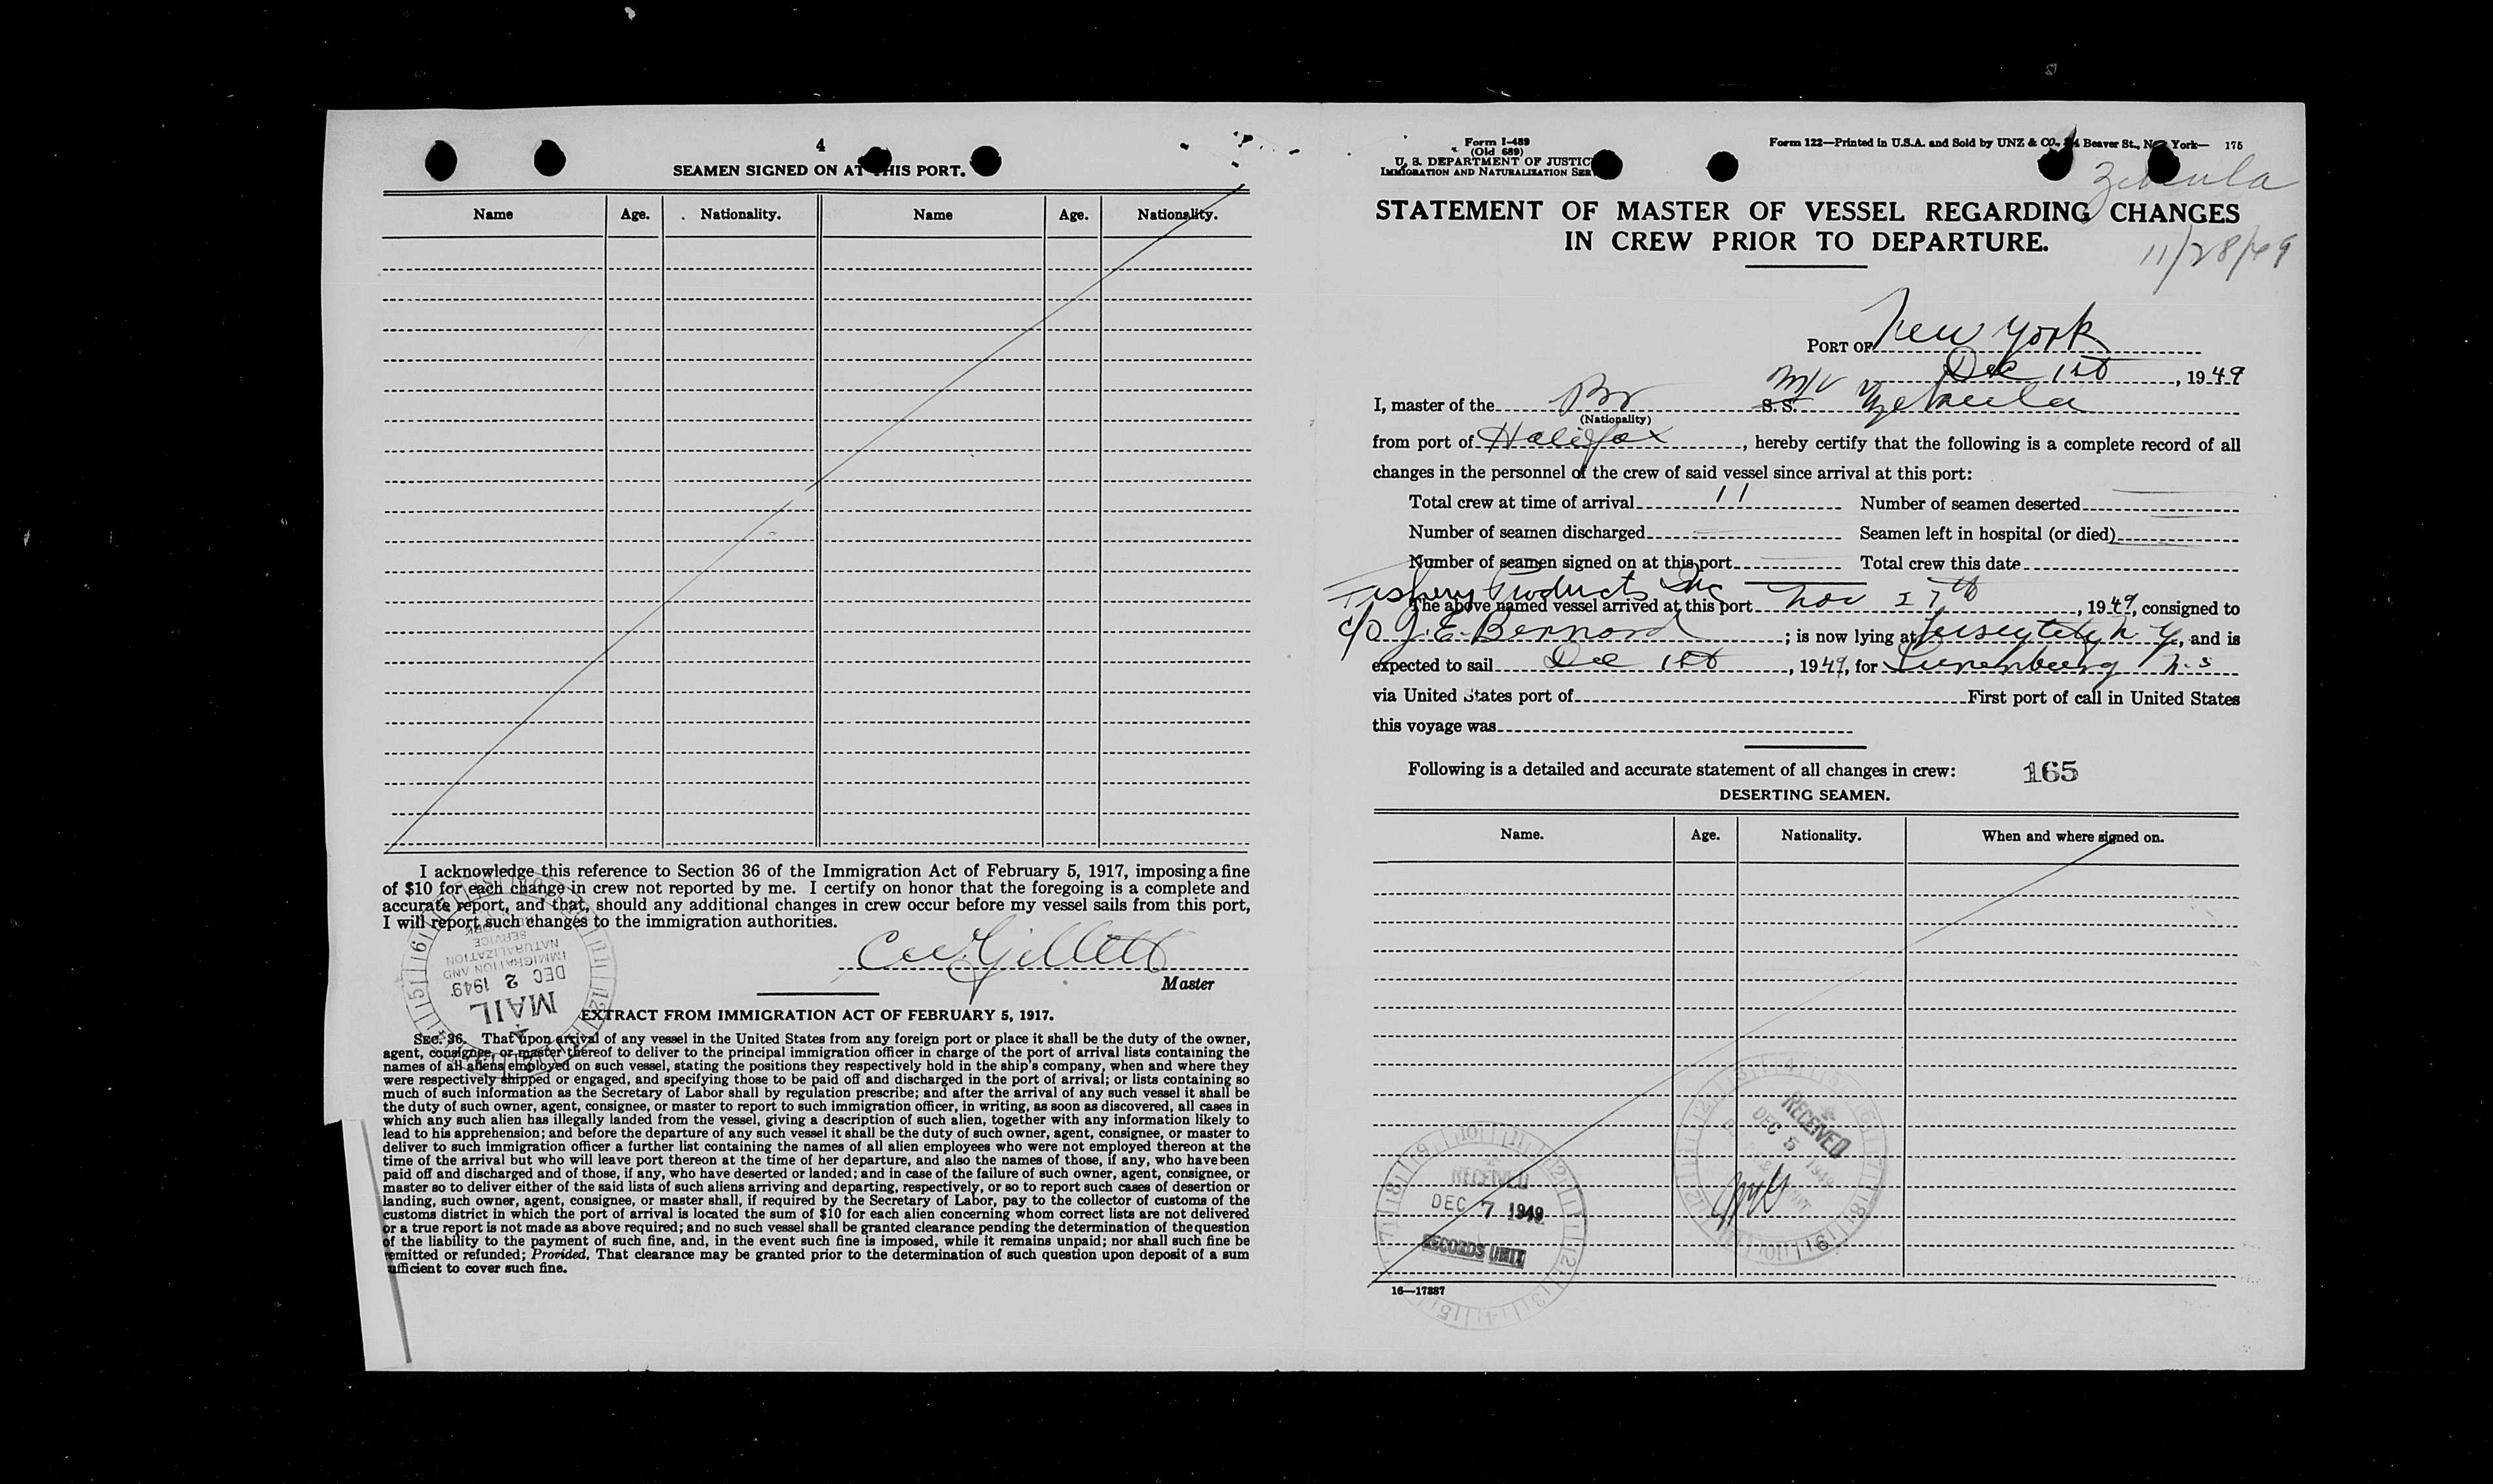 4
SEAMEN SIGNED ON AT THIS PORT.
Name Age. Nationality. Name Age. Nationality.
I acknowledge this reference to Section 36 of the Immigration Act of February 5, 1917, imposing a fine
of $10 for each change in crew not reported by me. I certify on honor that the foregoing is a complete and
accurate report, and that, should any additional changes in crew occur before my vessel sails from this port,
I will report such changes to the immigration authorities.
Gillett
Master
IMMIGRATION AND
NATURALIZATION
SERVICE
DEC 2 1949
MAIL
EXTRACT FROM IMMIGRATION ACT OF FEBRUARY 5, 1917.
SEC. 36. That upon arrival of any vessel in the United States from any foreign port or place it shall be the duty of the owner,
agent, consignee, or master thereof to deliver to the principal immigration officer in charge of the port of arrival lists containing the
names of all aliens employed on such vessel, stating the positions they respectively hold in the ship's company, when and where they
were respectively shipped or engaged, and specifying those to be paid off and discharged in the port of arrival; or lists containing so
much of such information as the Secretary of Labor shall by regulation prescribe; and after the arrival of any such vessel it shall be
the duty of such owner, agent, consignee, or master to report to such immigration officer, in writing, as soon as discovered, all cases in
which any such alien has illegally landed from the vessel, giving a description of such alien, together with any information likely to
lead to his apprehension; and before the departure of any such vessel it shall be the duty of such owner, agent, consignee, or master to
deliver to such immigration officer a further list containing the names of all alien employees who were not employed thereon at the
time of the arrival but who will leave port thereon at the time of her departure, and also the names of those, if any, who have been
paid off and discharged and of those, if any, who have deserted or landed; and in case of the failure of such owner, agent, consignee, or
master so to deliver either of the said lists of such aliens arriving and departing, respectively, or so to report such cases of desertion or
landing, such owner, agent, consignee, or master shall, if required by the Secretary of Labor, pay to the collector of customs of the
customs district in which the port of arrival is located the sum of $10 for each alien concerning whom correct lists are not delivered
or a true report is not made as above required; and no such vessel shall be granted clearance pending the determination of the question
of the liability to the payment of such fine, and, in the event such fine is imposed, while it remains unpaid; nor shall such fine be
remitted or refunded; Provided, That clearance may be granted prior to the determination of such question upon deposit of a sum
sufficient to cover such fine.
Form I-489
(Old 689)
U. S. DEPARTMENT OF JUSTICE
IMMIGRATION AND NATURALIZATION SER
Form 122—Printed in U.S.A. and Sold by UNZ & CO., Beaver St., New York— 175
STATEMENT OF MASTER OF VESSEL REGARDING CHANGES
IN CREW PRIOR TO DEPARTURE.
11/28/49
PORT OF New York
Dec 1st, 1949
I, master of the Br S.S. M/V
(Nationality)
from port of Halifax, hereby certify that the following is a complete record of all
changes in the personnel of the crew of said vessel since arrival at this port:
Total crew at time of arrival 11 Number of seamen deserted
Number of seamen discharged Seamen left in hospital (or died)
Number of seamen signed on at this port Total crew this date
Fishery Products Inc
The above named vessel arrived at this port Nov 27th, 1949, consigned to
c/o J. E. Bernard; is now lying at Jersey City N Y, and is
expected to sail Dec 1st, 1949, for Lunenburg N.S
via United States port of First port of call in United States
this voyage was
Following is a detailed and accurate statement of all changes in crew: 165
DESERTING SEAMEN.
Name. Age. Nationality. When and where signed on.
RECEIVED
DEC 5 1949
RECEIVED
DEC 7 1949
RECORDS UNIT
16—17387